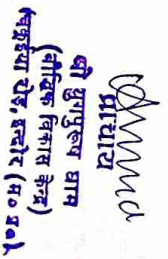 प्राचार्य
श्री युगपुरुष धाम
(बौद्धिक विकास केन्द्र)
पंचकुईया रोड, इन्दौर (म०प्र०)